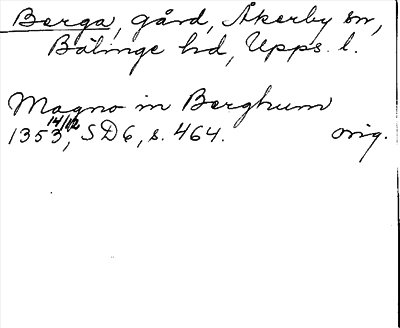 Berga, gård, Åkerby sn,
Bälinge hd, Upps. l.
Magno in Berghum
1353 14/12, SD 6, s. 464. orig.